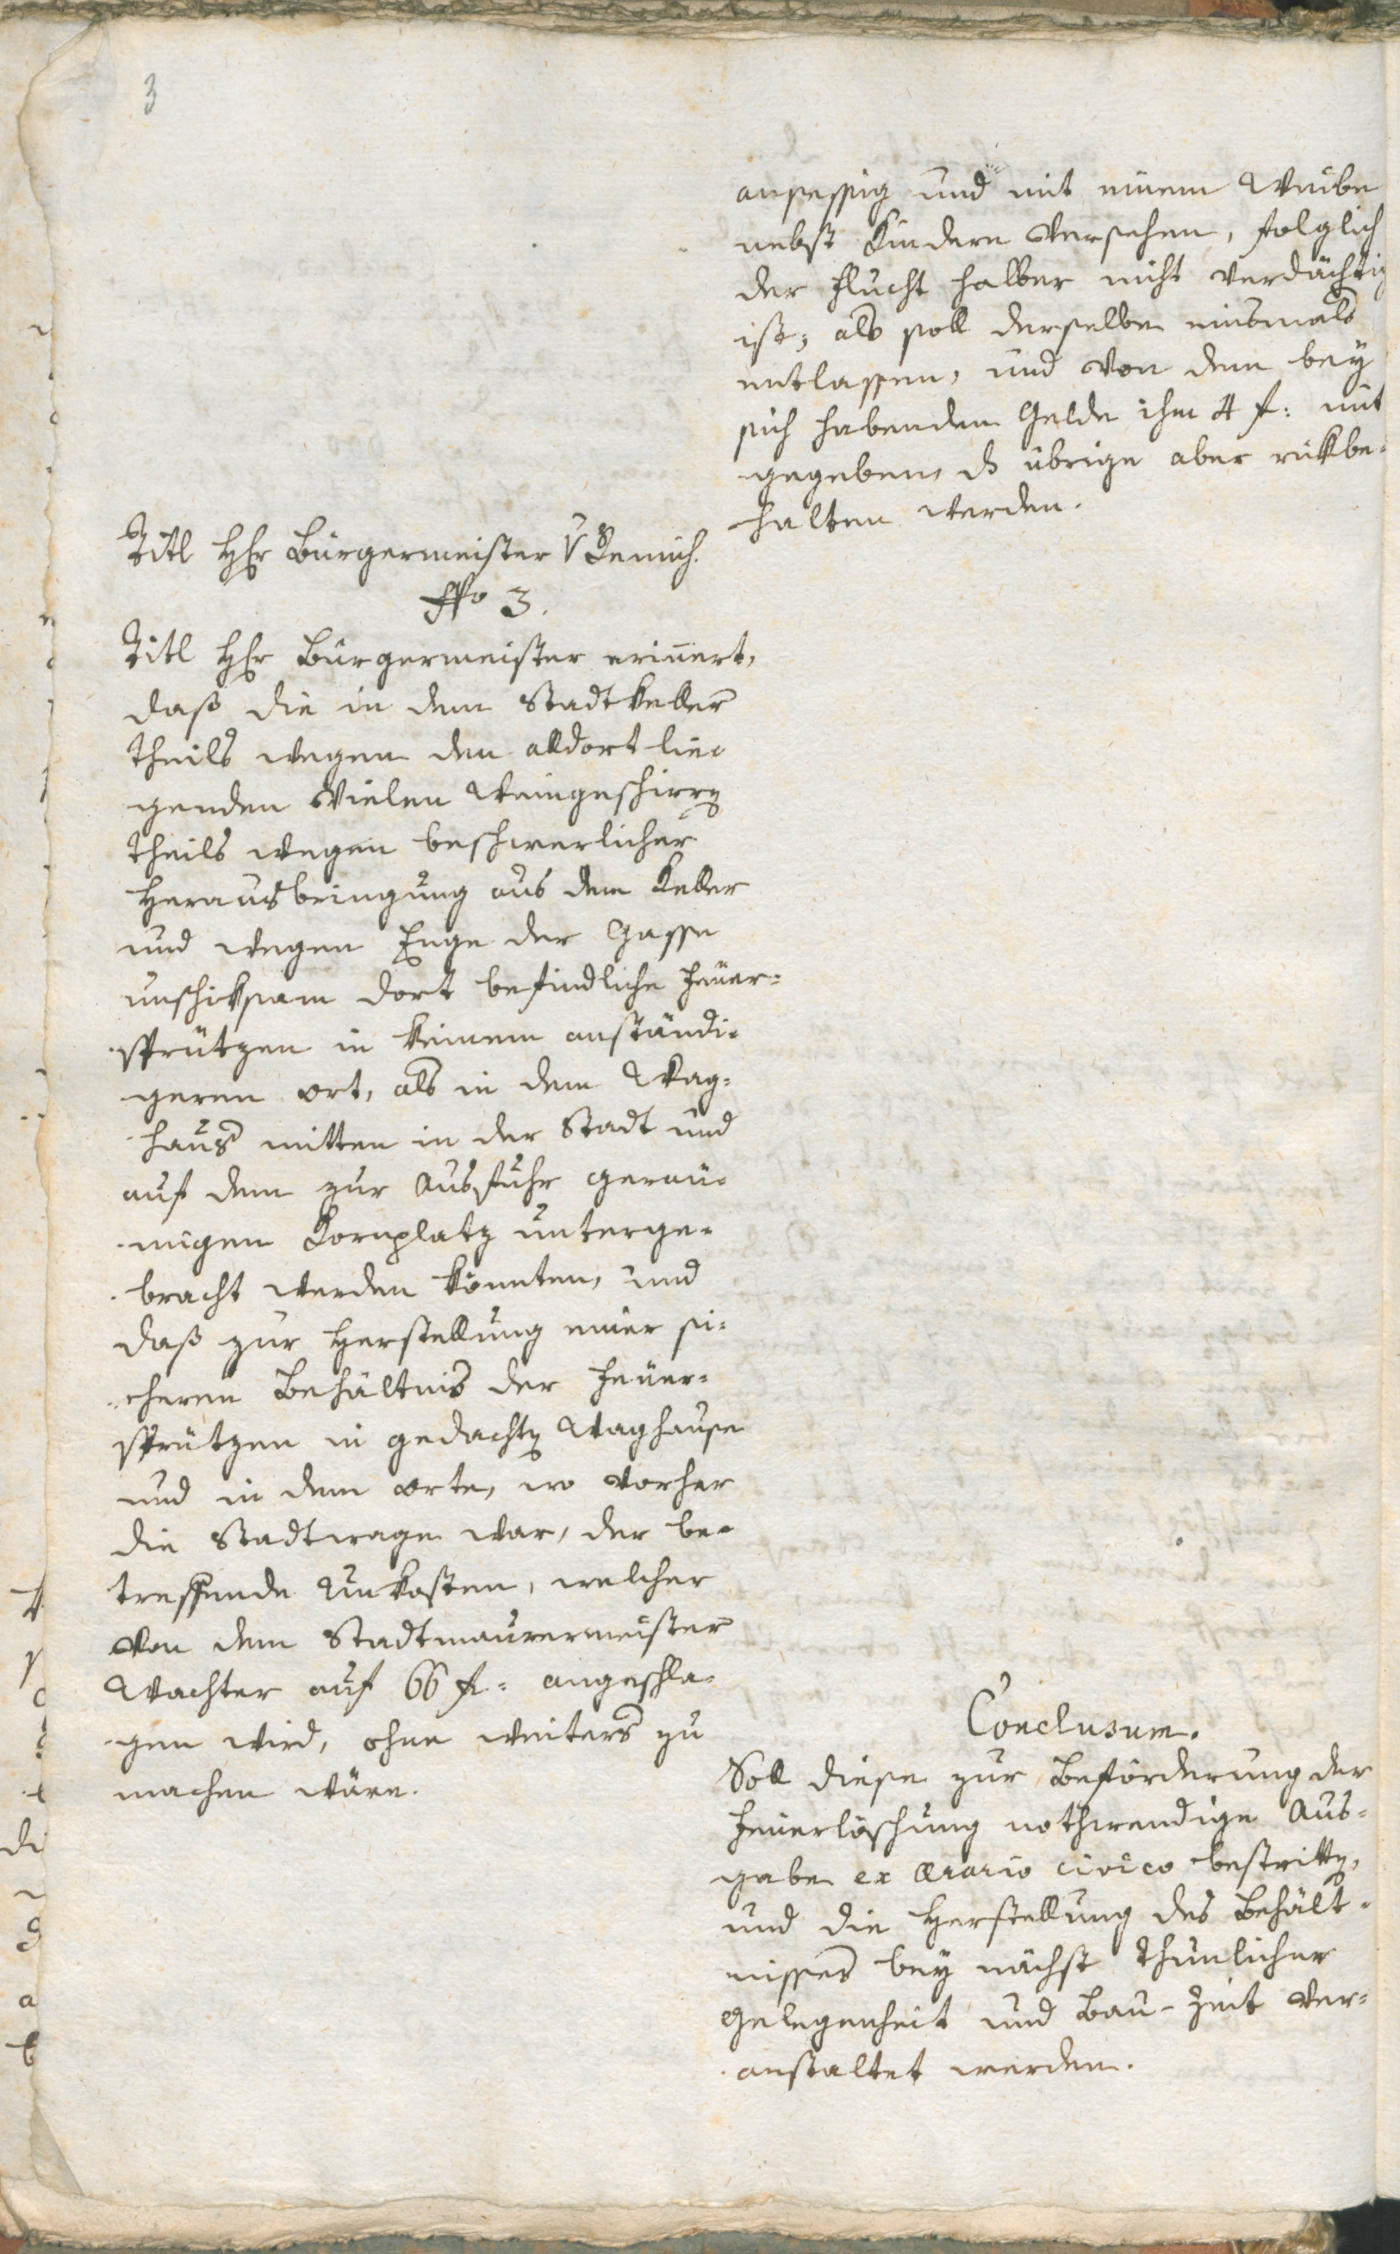 3
ansessig und mit einem Weibe
nebst Kindern versehen, folglich
der Flucht halber nicht verdächtig
ist; als soll derselbe einsmals
entlassen, und von dem bey
sich habenden Gelde ihm 4 f: mit
gegeben, ds übrige aber rükbe-
halten werden.
Titl HEr Bürgermeister V
No 3.
Titl HEr Bürgermeister erinnert,
daß die in dem Stadtkeller
theils wegen den alldort lie-
genden vielen Weingeschirren
theils wegen beschwerlicher
Herausbringung aus dem Keller
und wegen Enge der Gasse
unschiksam dort befindliche Feuer-
sprützen in keinem anständi-
geren ort, als in dem Wag-
haus mitten in der Stadt und
auf dem zur Ausfuhr geräu-
migen Kornplatz unterge-
bracht werden könnten, und
daß zur Herstellung einer si-
cheren Behältnis der Feuer-
sprützen in gedachten Waghause
und in dem orte, wo vorher
die Stadtwage war, der be-
treffende Unkosten, welcher
von dem Stadtmaurermeister
Wachter auf 66 f: angeschla-
gen wird, ohne weiters zu
machen wäre.
Conclusum.
Soll diese zur Beförderung der
Feuerlöschung nothwendige Aus-
gabe ex Ærario civico bestritten,
und die Herstellung des Behält-
nisses bey nächst thunlicher
Gelegenheit und Bau-Zeit ver-
anstaltet werden.